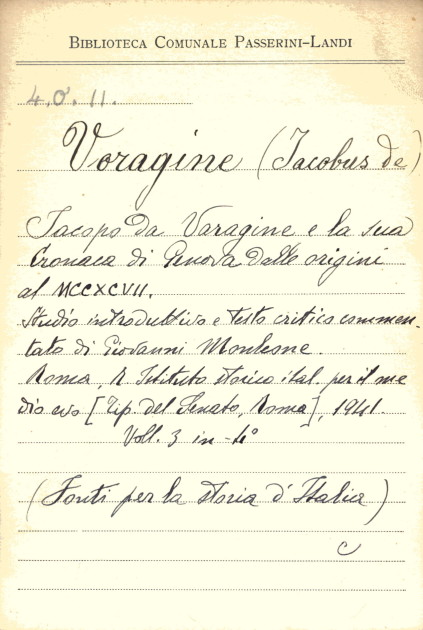 BIBLIOTECA COMUNALE PASSERINI-LANDI
4.O.11.
Voragine (Jacobus de)
Jacopo da Varagine e la sua
Cronaca di Genova dalle origini
al MCCXCVII.
Studio introduttivo e testo critico commen-
tato di Giovanni Monleone.
Roma, R. Istituto storico ital. per il me
dio evo [Tip. del Senato, Roma], 1941.
Voll. 3 in-4°
(Fonti per la storia d'Italia)
C